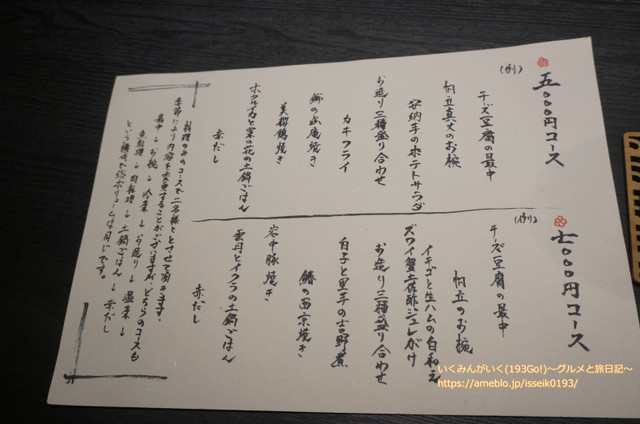 五〇〇〇円コース
(例)
チーズ豆腐の最中
帆立真丈のお椀
安納芋のポテトサラダ
お造り三種盛り合わせ
カキフライ
鰤の幽庵焼き
美都鶏焼き
ホタルイカと菜の花の土鍋ごはん
赤だし
七〇〇〇円コース
(例)
チーズ豆腐の最中
帆立のお椀
イチゴと生ハムの白和え
ズワイ蟹土佐酢ジュレがけ
お造り三種盛り合わせ
白子と里芋の吉野煮
鰆の西京焼き
岩中豚焼き
雲丹とイクラの土鍋ごはん
赤だし
料理のみのコースで二名様とさせて頂きます。
季節により内容を変更することがございますが、どちらのコースも
最中→お椀→冷菜→お造り→温菜→
魚料理→肉料理→土鍋ごはん→赤だし
という構成で総ボリュームは同じです。
いくみんがいく(193Go!)〜グルメと旅日記〜
https://ameblo.jp/isseik0193/